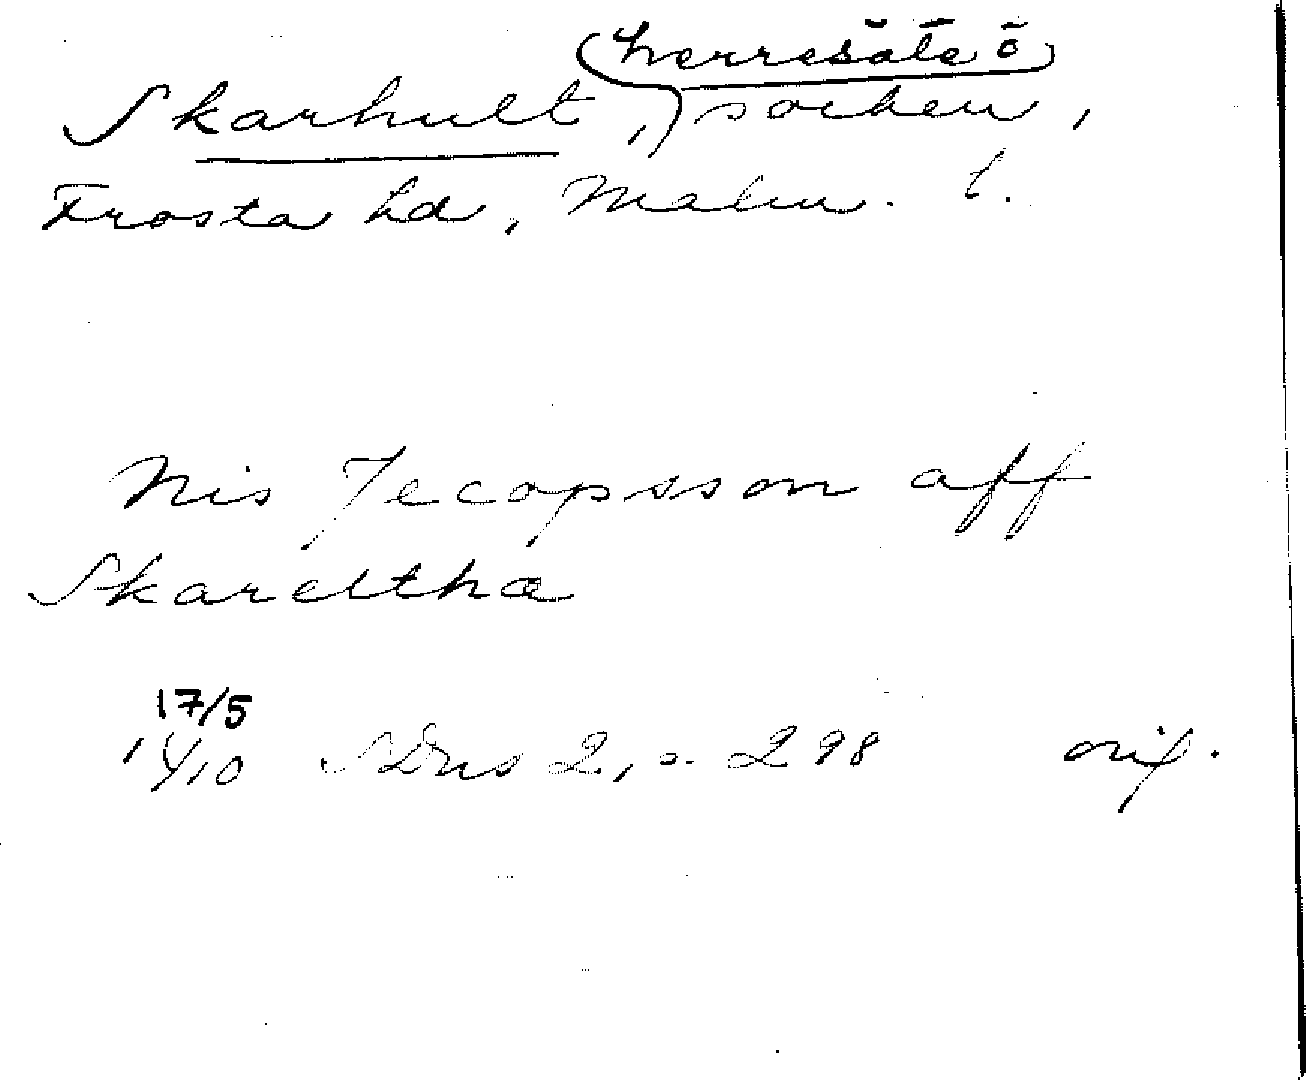 (herresäte o)
Skarhult, socken,
Frosta hd, Malm. l.
Nis Jecopsson aff
Skareltha
17/5
1410 SDns 2, s. 298 orig.